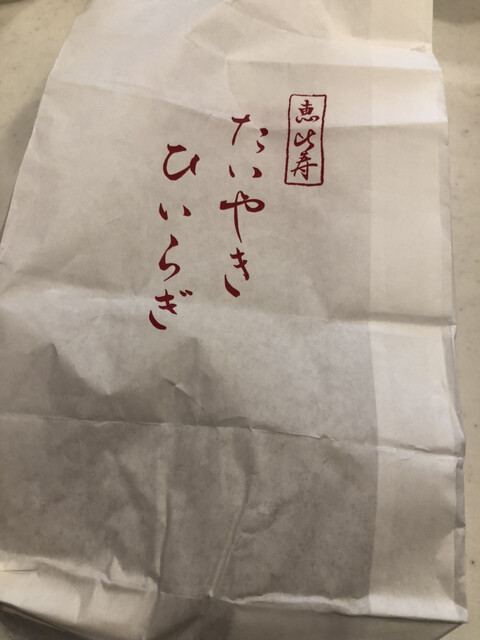 恵比寿
たいやき
ひいらぎ